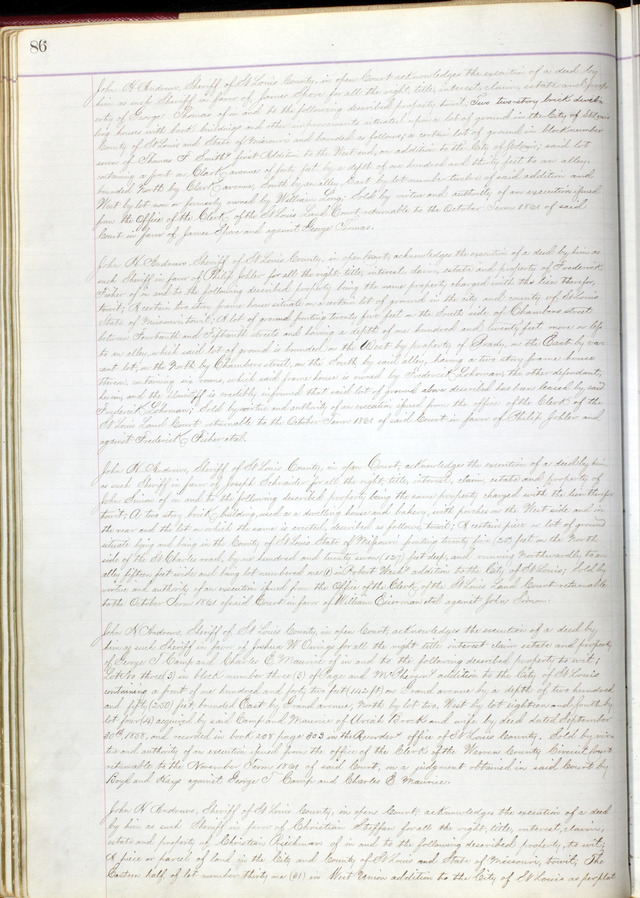 86
John H Andrews, Sheriff of St Louis County, in open Court acknowledges the execution of a deed by
him as such Sheriff in favor of James Spore for all the right, title, interest, claim, estate and prop
erty of George Thomas of in and to the following described property towit: Two two-story brick dwel
ling houses with back buildings and other improvements situated upon a lot of ground in the City of St Louis
County of St Louis and State of Missouri and bounded as follows; a certain lot of ground in block number
seven of Thomas F Smith's first Addition to the West end, an addition to the City of St Louis; said lot
containing a front on Clark avenue of forty feet by a depth of one hundred and thirty feet to an alley,
bounded North by Clark avenue, South by an alley, East by lot number twelve of said addition and
West by lot now or formerly owned by William Long; Sold by virtue and authority of an execution issued
from the Office of the Clerk of the St Louis Land Court returnable to the October Term 1861 of said
Court in favor of James Spore and against George Thomas.
John H Andrews, Sheriff of St Louis County, in open Court, acknowledges the execution of a deed by him as
such Sheriff in favor of Philip Johler for all the right, title, interest, claim, estate and property of Frederick
Fisher of in and to the following described property being the same property charged with the lien therefor,
towit; A certain two story frame house situate on a certain lot of ground in the city and county of St Louis
State of Missouri towit; A lot of ground fronting twenty five feet on the South side of Chambers street
between Fourteenth and Fifteenth streets and having a depth of one hundred and twenty feet more or less
to an alley, which said lot of ground is bounded on the West by property of Brady, on the East by va
cant lot, on the North by Chambers street, on the South by said alley, having a two story frame house
thereon containing six rooms, which said frame house is owned by Frederick Lohman, the other defendant,
herein, and the plaintiff is credibly informed that said lot of ground above described has been leased by said
Frederick Lohman; Sold by virtue and authority of an execution issued from the office of the Clerk of the
St Louis Land Court returnable to the October Term 1861 of said Court in favor of Philip Johler and
against Frederick Fisher et al.
John H. Andrews, Sheriff of St Louis County, in open Court, acknowledges the execution of a deed by him
as such Sheriff in favor of Joseph Schnaider for all the right, title, interest, claim, estate and property of
John Simon of in and to the following described property being the same property charged with the lien therefor
towit; A two story brick building, used as a dwelling house and bakery, with porches on the West side and in
the rear and the lot on which the same is erected, described as follows, towit; A certain piece or lot of ground
situate lying and being in the County of St Louis State of Missouri fronting twenty five (25) feet on the North
side of the St Charles road, by one hundred and twenty seven (127) feet deep, and running Northwardly to an
alley fifteen feet wide and being lot numbered one (1) in Robert Wash' addition to the City of St Louis; Sold by
virtue and authority of an execution issued from the Office of the Clerk of the St Louis Land Court returnable
to the October Term 1861 of said Court in favor of William Eierman et al against John Simon.
John H Andrews, Sheriff of St Louis County, in open Court, acknowledges the execution of a deed by
him as such Sheriff in favor of Joshua W Owings for all the right title interest claim estate and property
of George T Camp and Charles E Maurice of in and to the following described property to wit;
Lot No three (3) in block number three (3) of Page and McPherson's addition to the City of St Louis
containing a front of one hundred and forty two feet (142 ft) on Grand avenue by a depth of two hundred
and fifty (250) feet, bounded East by Grand avenue, North by lot two, West by lot eighteen and South by
lot four (4) acquired by said Camp and Maurice of Uriah Brock and wife by deed dated September
30th 1858, and recorded in book 208 page 303 in the Recorder's office of St Louis County. Sold by vir
tue and authority of an execution issued from the office of the Clerk of the Warren County Circuit Court
returnable to the November Term 1861 of said Court, on a judgment obtained in said Court by
Boyd and Keys against George T Camp and Charles E Maurice.
John H Andrews, Sheriff of St Louis County, in open Court, acknowledges the execution of a deed
by him as such Sheriff in favor of Christian Steffen for all the right, title, interest, claim,
estate and property of Christian Rickman of in and to the following described property, to wit;
A piece or parcel of land in the City and County of St Louis and State of Missouri, towit; The
Eastern half of lot number thirty one (31) in West Union addition to the City of St Louis as per plat